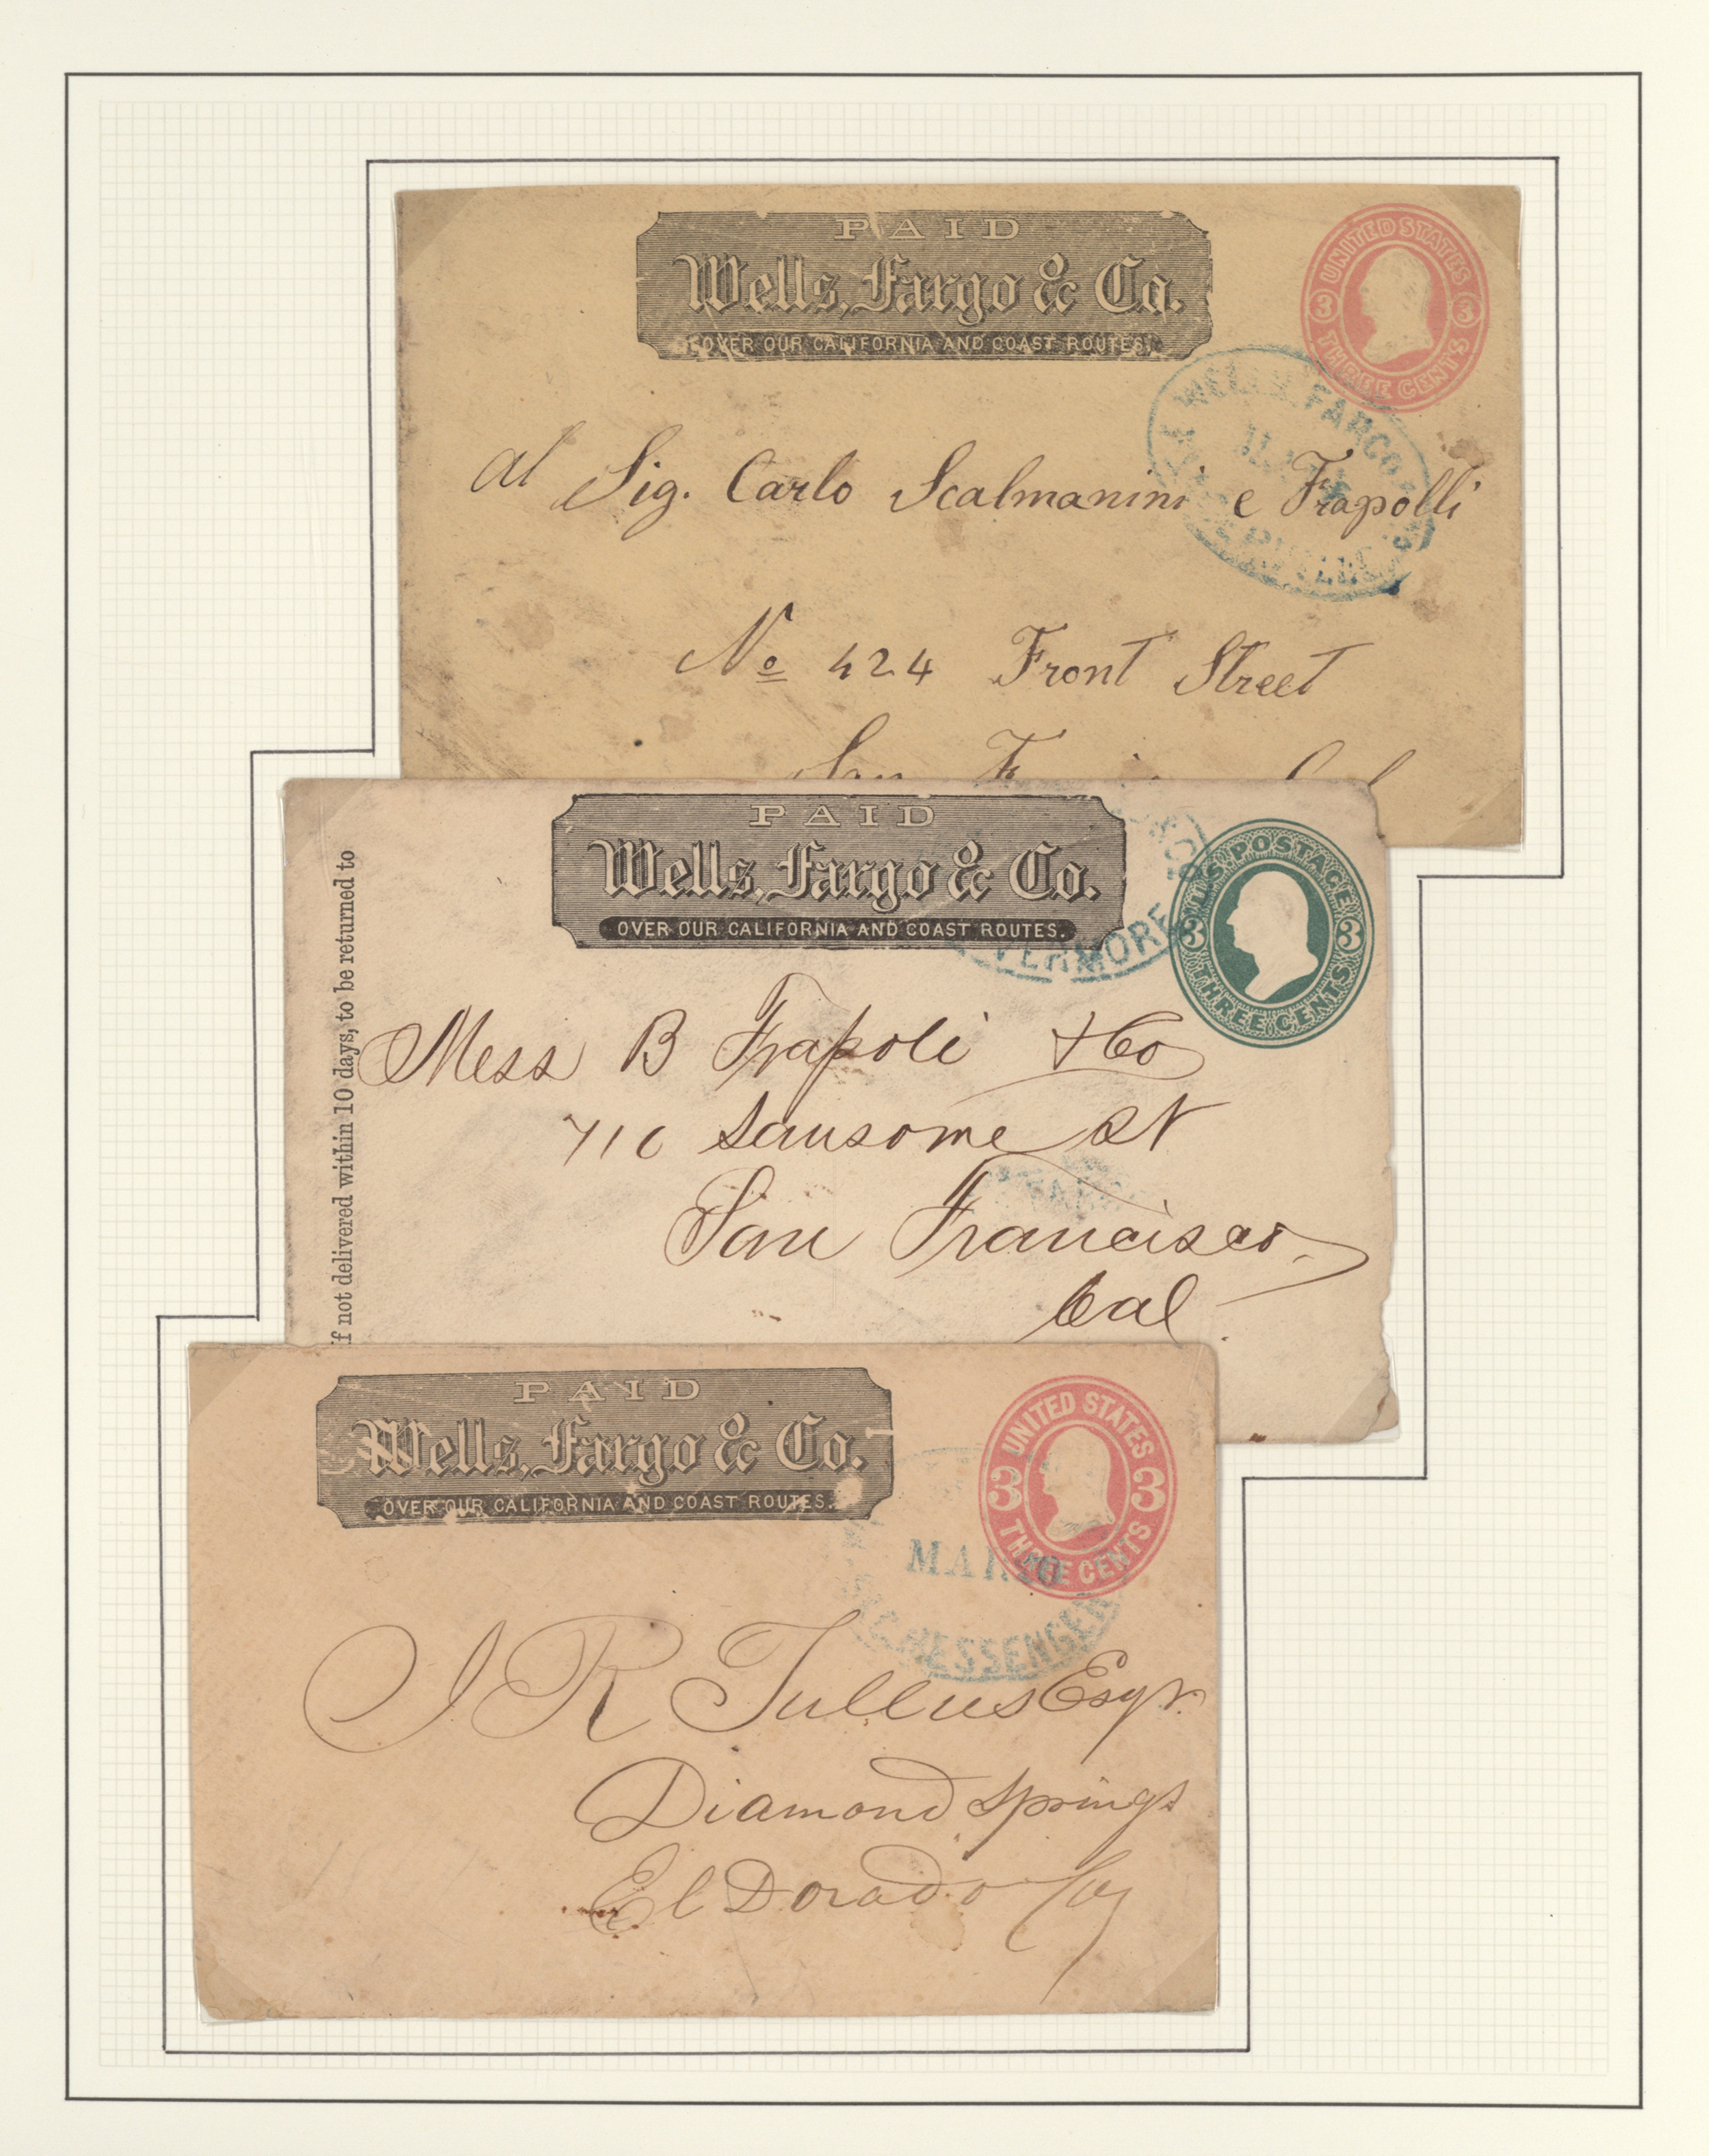 PAID
Wells, Fargo & Co.
OVER OUR CALIFORNIA AND COAST ROUTES.
UNITED STATES
3 3
THREE CENTS
WELLS, FARGO
al Sig. Carlo Scalmanini e Frapolli
No 424 Front Street
San
PAID
Wells, Fargo & Co.
OVER OUR CALIFORNIA AND COAST ROUTES.
U.S. POSTAGE
3 3
THREE CENTS
VERMORE
if not delivered within 10 days, to be returned to
Mess B Frapoli & Co
710 Sansome St
San Francisco
Cal
PAID
Wells, Fargo & Co.
OVER OUR CALIFORNIA AND COAST ROUTES.
UNITED STATES
3 3
THREE CENTS
MAR 20
MESSENGER
J R Tullus Esqr.
Diamond Springs
El Dorado Co